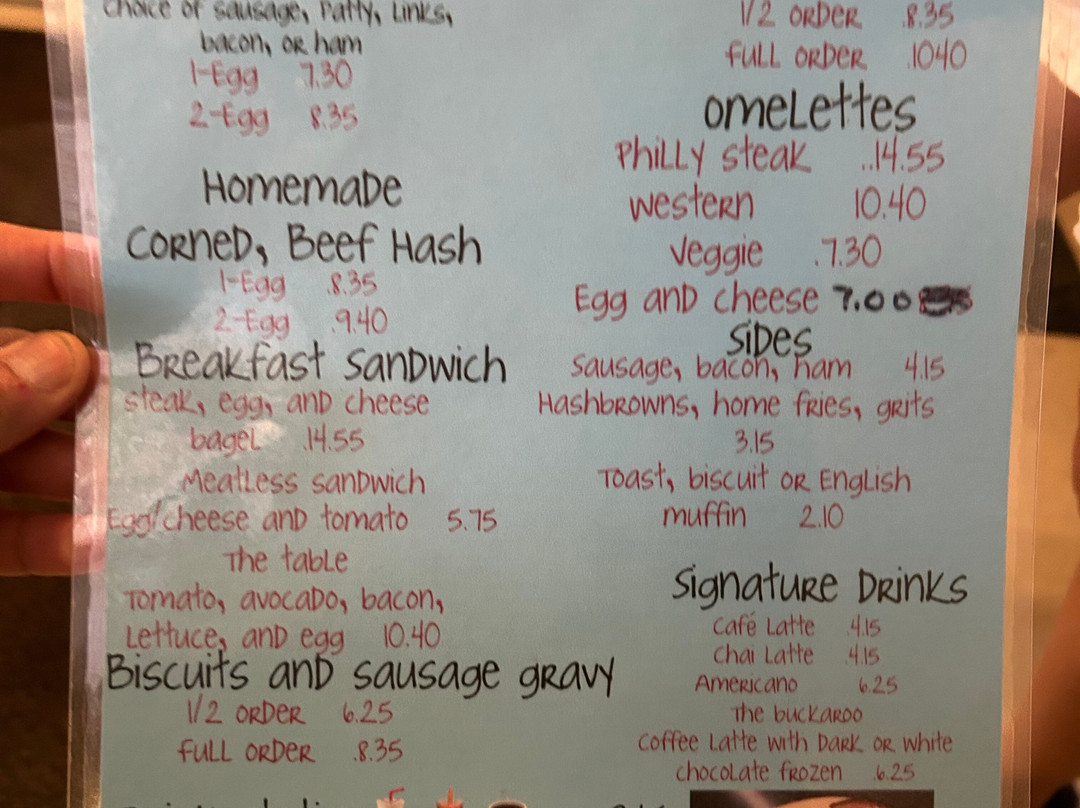 Choice of sausage, Patty, Links,
bacon, or ham
1-Egg 7.30
2-Egg 8.35
Homemade
Corned, Beef Hash
1-Egg .8.35
2-Egg .9.40
Breakfast Sandwich
steak, egg, and cheese
bagel .14.55
Meatless sandwich
Egg/cheese and tomato 5.75
The table
Tomato, avocado, bacon,
Lettuce, and egg 10.40
Biscuits and sausage gravy
1/2 order 6.25
full order .8.35
1/2 order .8.35
full order .1040
omelettes
Philly steak ..14.55
western 10.40
veggie .7.30
Egg and cheese 7.00
Sides
Sausage, bacon, ham 4.15
Hashbrowns, home fries, grits
3.15
Toast, biscuit or English
muffin 2.10
Signature Drinks
Café Latte .4.15
Chai Latte .4.15
Americano 6.25
The buckaroo
Coffee Latte with Dark or white
chocolate frozen .6.25